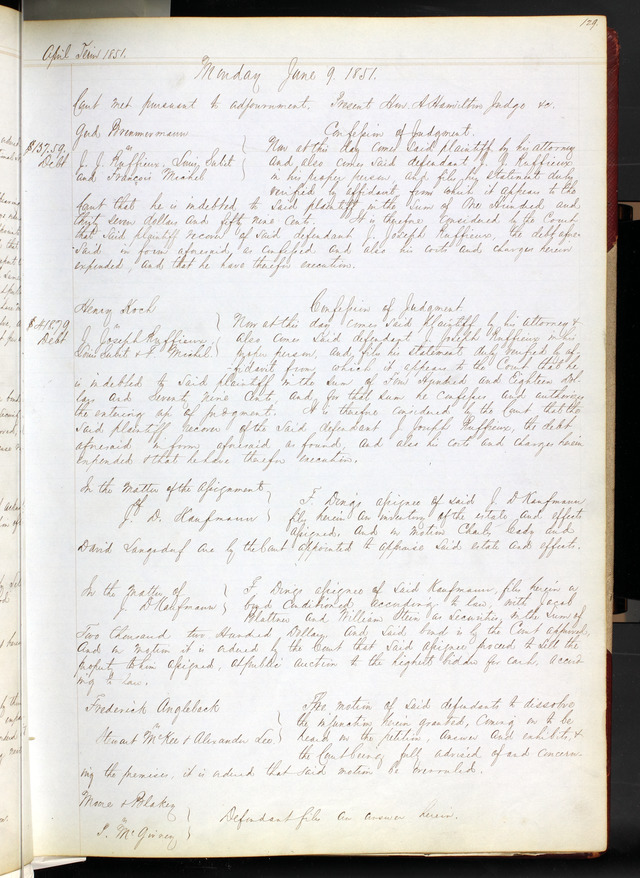 129
April Term 1851.
Monday June 9 1851.
Court met pursuant to adjournment. Present Hon. A Hamilton Judge &c.
God Brennermann Confession of Judgment.
$137.59 Debt
vs } Now at this day comes Said plaintiff by his attorney
J. J. Ruffieux, Louis Subit and also comes Said defendant J. J. Ruffieux
and François Michel in his proper person and files his statement duly
verified by affidavit from which it appears to the
Court that he is indebted to Said plaintiff in the Sum of One Hundred and
thirty Seven dollars and fifty nine Cents. It is therefore considered by the Court
that Said plaintiff recover of Said defendant J. Joseph Ruffieux, the debt afore
Said in form aforesaid, as confessed and also his costs and charges herein
expended, and that he have therefor execution.
Henry Koch Confession of Judgment
$418.79 Debt
vs } Now at this day comes Said Plaintiff by his attorney &
J. Joseph Ruffieux, also comes Said defendant J. Joseph Ruffieux in his
Louis Subit & F. Michel proper person, and files his Statement duly verified by af-
fidavit from which it appears to the Court that he
is indebted to Said plaintiff in the Sum of Four Hundred and Eighteen dol-
lars and Seventy nine Cents, and for that sum he confesses and authorizes
the entering up of judgment. It is therefore considered by the Court that the
Said plaintiff recover of the Said defendant J. Joseph Ruffieux, the debt
aforesaid in form aforesaid as found, and also his costs and charges herein
expended & that he have therefor execution.
In the Matter of the Assignment
of } F. Dings assignee of said J. D Kaufmann
J. D. Kaufmann files herein an inventory of the estate and effects
assigned, and on motion Charles Eads and
David Langsdorf are by the Court appointed to appraise Said estate and effects.
In the Matter of } F. Dings assignee of Said Kaufmann, files herein a
J. D Kaufmann bond Conditioned according to law, with Jacob
Blattner and William Stein as Securities, in the Sum of
Two thousand two Hundred Dollars and Said bond is by the Court approved,
And on motion it is ordered by the Court that Said assignee proceed to Sell the
property to him assigned, at public auction to the highest bidder for cash, accord-
ing to law.
Frederick Angleback } The motion of Said defendants to dissolve
vs the injunction herein granted, Coming on to be
Stewart McKee & Alexander Lee heard on the petition, answer and exhibits, &
the Court being fully advised of and concern-
ing the premises, it is ordered that said motion be overruled.
Moore & Blakey
vs } Defendant files an answer herein.
P. McGivney